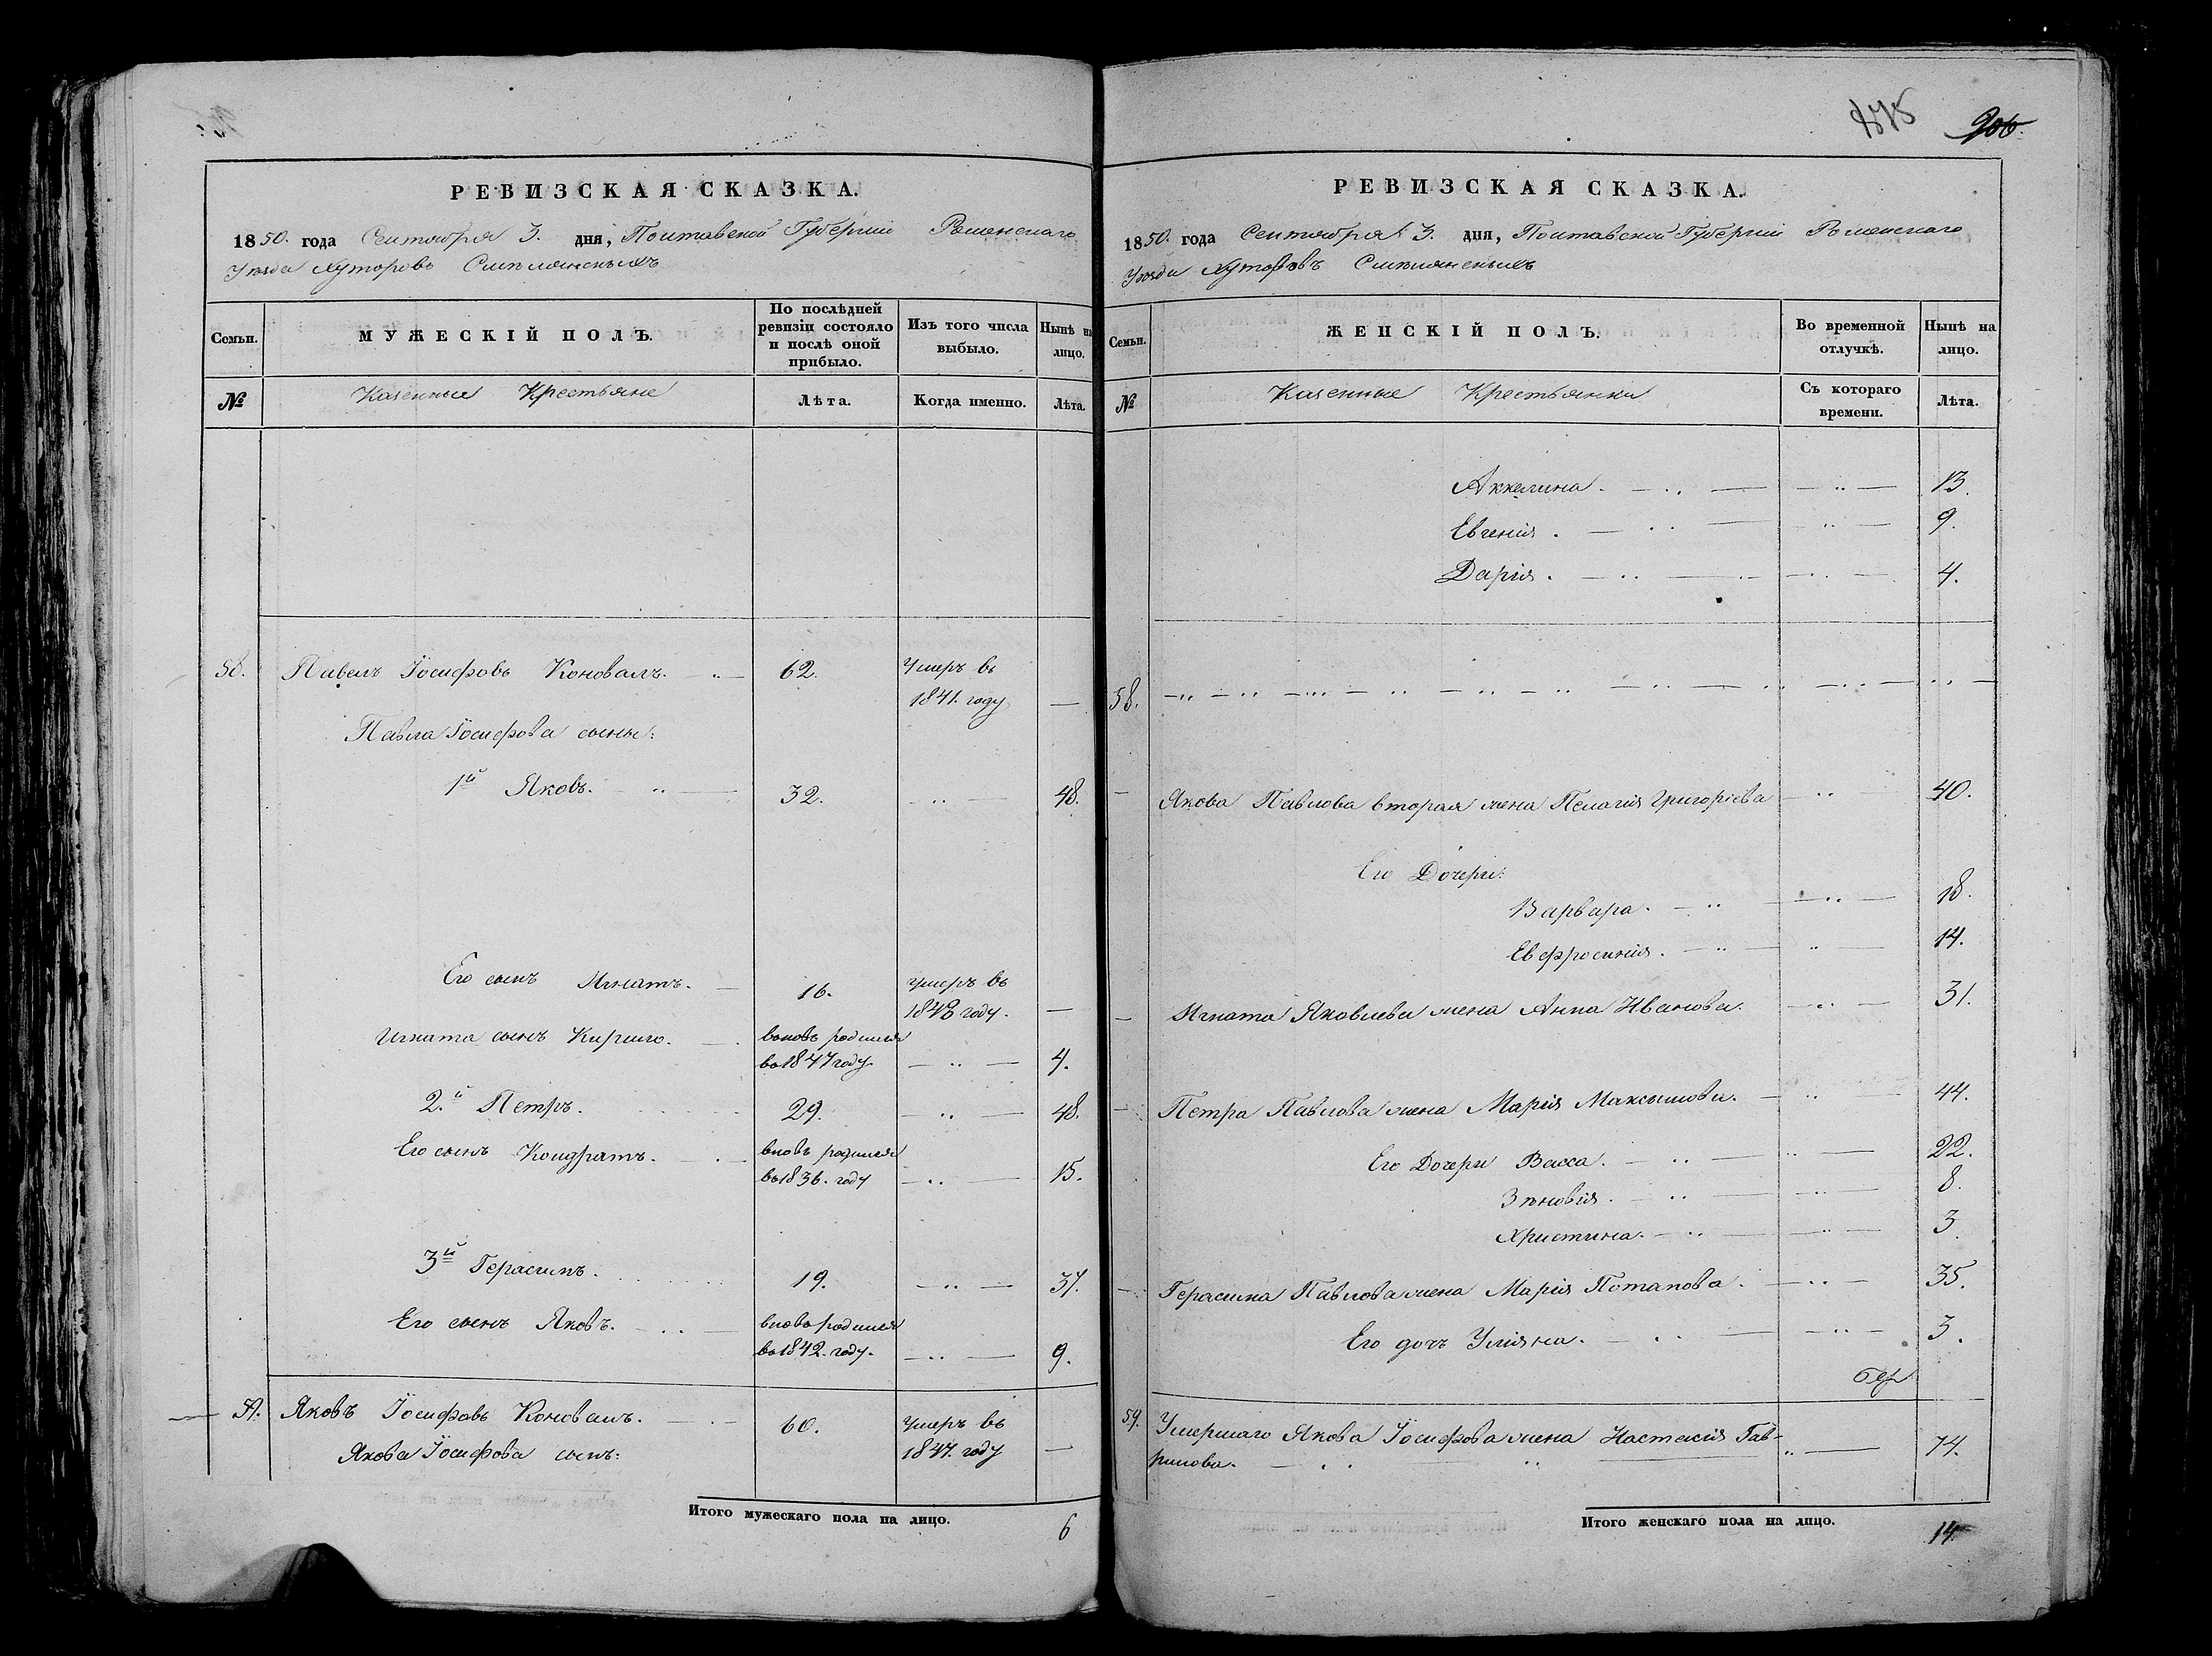 РЕВИЗСКАЯ СКАЗКА.
1850. года Сентября 3. дня, Полтавской Губерніи Роменскаго
Уѣзда Хуторовъ
Семьи.
МУЖЕСКІЙ ПОЛЪ.
По послѣдней ревизіи состояло и послѣ оной прибыло.
Изъ того числа выбыло.
Нынѣ на лицо.
№
Казенные Крестьяне
Лѣта.
Когда именно.
Лѣта.
58. Павелъ Іосифовъ Коновалъ. 62. Умеръ въ
1841. году —
Павла Іосифова сыны:
1й Яковъ. 32. 48.
Его сынъ Игнатъ. 16. умеръ въ
1848 году. —
Игната сынъ Кирило. вновь родился
въ 1847 году. 4.
2.й Петръ. 29. 48.
Его сынъ Кондратъ. вновь родился
въ 1836. году 15.
3й Герасимъ. 19. 37.
Его сынъ Яковъ. вновь родился
въ 1842. году. 9.
59. Яковъ Іосифовъ Коновалъ. 60. Умеръ въ
1847. году —
Якова Іосифова сынъ:
Итого мужескаго пола на лицо. 6
906.
РЕВИЗСКАЯ СКАЗКА.
1850. года Сентября 3. дня, Полтавской Губерніи Роменскаго
Уѣзда Хуторовъ
Семьи.
ЖЕНСКІЙ ПОЛЪ.
Во временной отлучкѣ.
Нынѣ на лицо.
№
Казенные Крестьянки
Съ котораго времени.
Лѣта.
Аккелина. 13.
Евгенія. 9.
Дарія. 4.
58.
Якова Павлова вторая жена Пелагія Григоріева 40.
Его Дочери:
Варвара. 18.
Евфросинія. 14.
Игната Яковлева жена Анна Иванова. 31.
Петра Павлова жена Марія Максымова. 44.
Его Дочери Васса. 22.
Зѣновія. 8.
Христина. 3
Герасима Павлова жена Марія Потапова. 35.
Его дочь Уліяна. 3.
59. Умершаго Якова Іосифова жена Настасія Гав-
рилова. 74.
Итого женскаго пола на лицо. 14